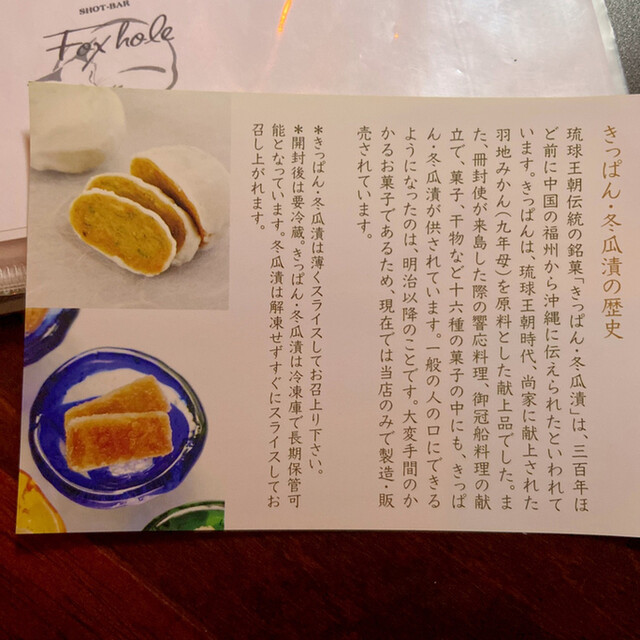 SHOT-BAR
Fox hole
きっぱん・冬瓜漬の歴史
琉球王朝伝統の銘菓「きっぱん・冬瓜漬」は、三百年ほ
ど前に中国の福州から沖縄に伝えられたといわれて
います。きっぱんは、琉球王朝時代、尚家に献上された
羽地みかん(九年母)を原料とした献上品でした。ま
た、冊封使が来島した際の饗応料理、御冠船料理の献
立て、菓子、干物など十六種の菓子の中にも、きっぱ
ん・冬瓜漬が供されています。一般の人の口にできる
ようになったのは、明治以降のことです。大変手間のか
かるお菓子であるため、現在では当店のみで製造・販
売されています。
*きっぱん・冬瓜漬は薄くスライスしてお召上り下さい。
*開封後は要冷蔵。きっぱん・冬瓜漬は冷凍庫で長期保管可
能となっています。冬瓜漬は解凍せずすぐにスライスしてお
召し上がれます。